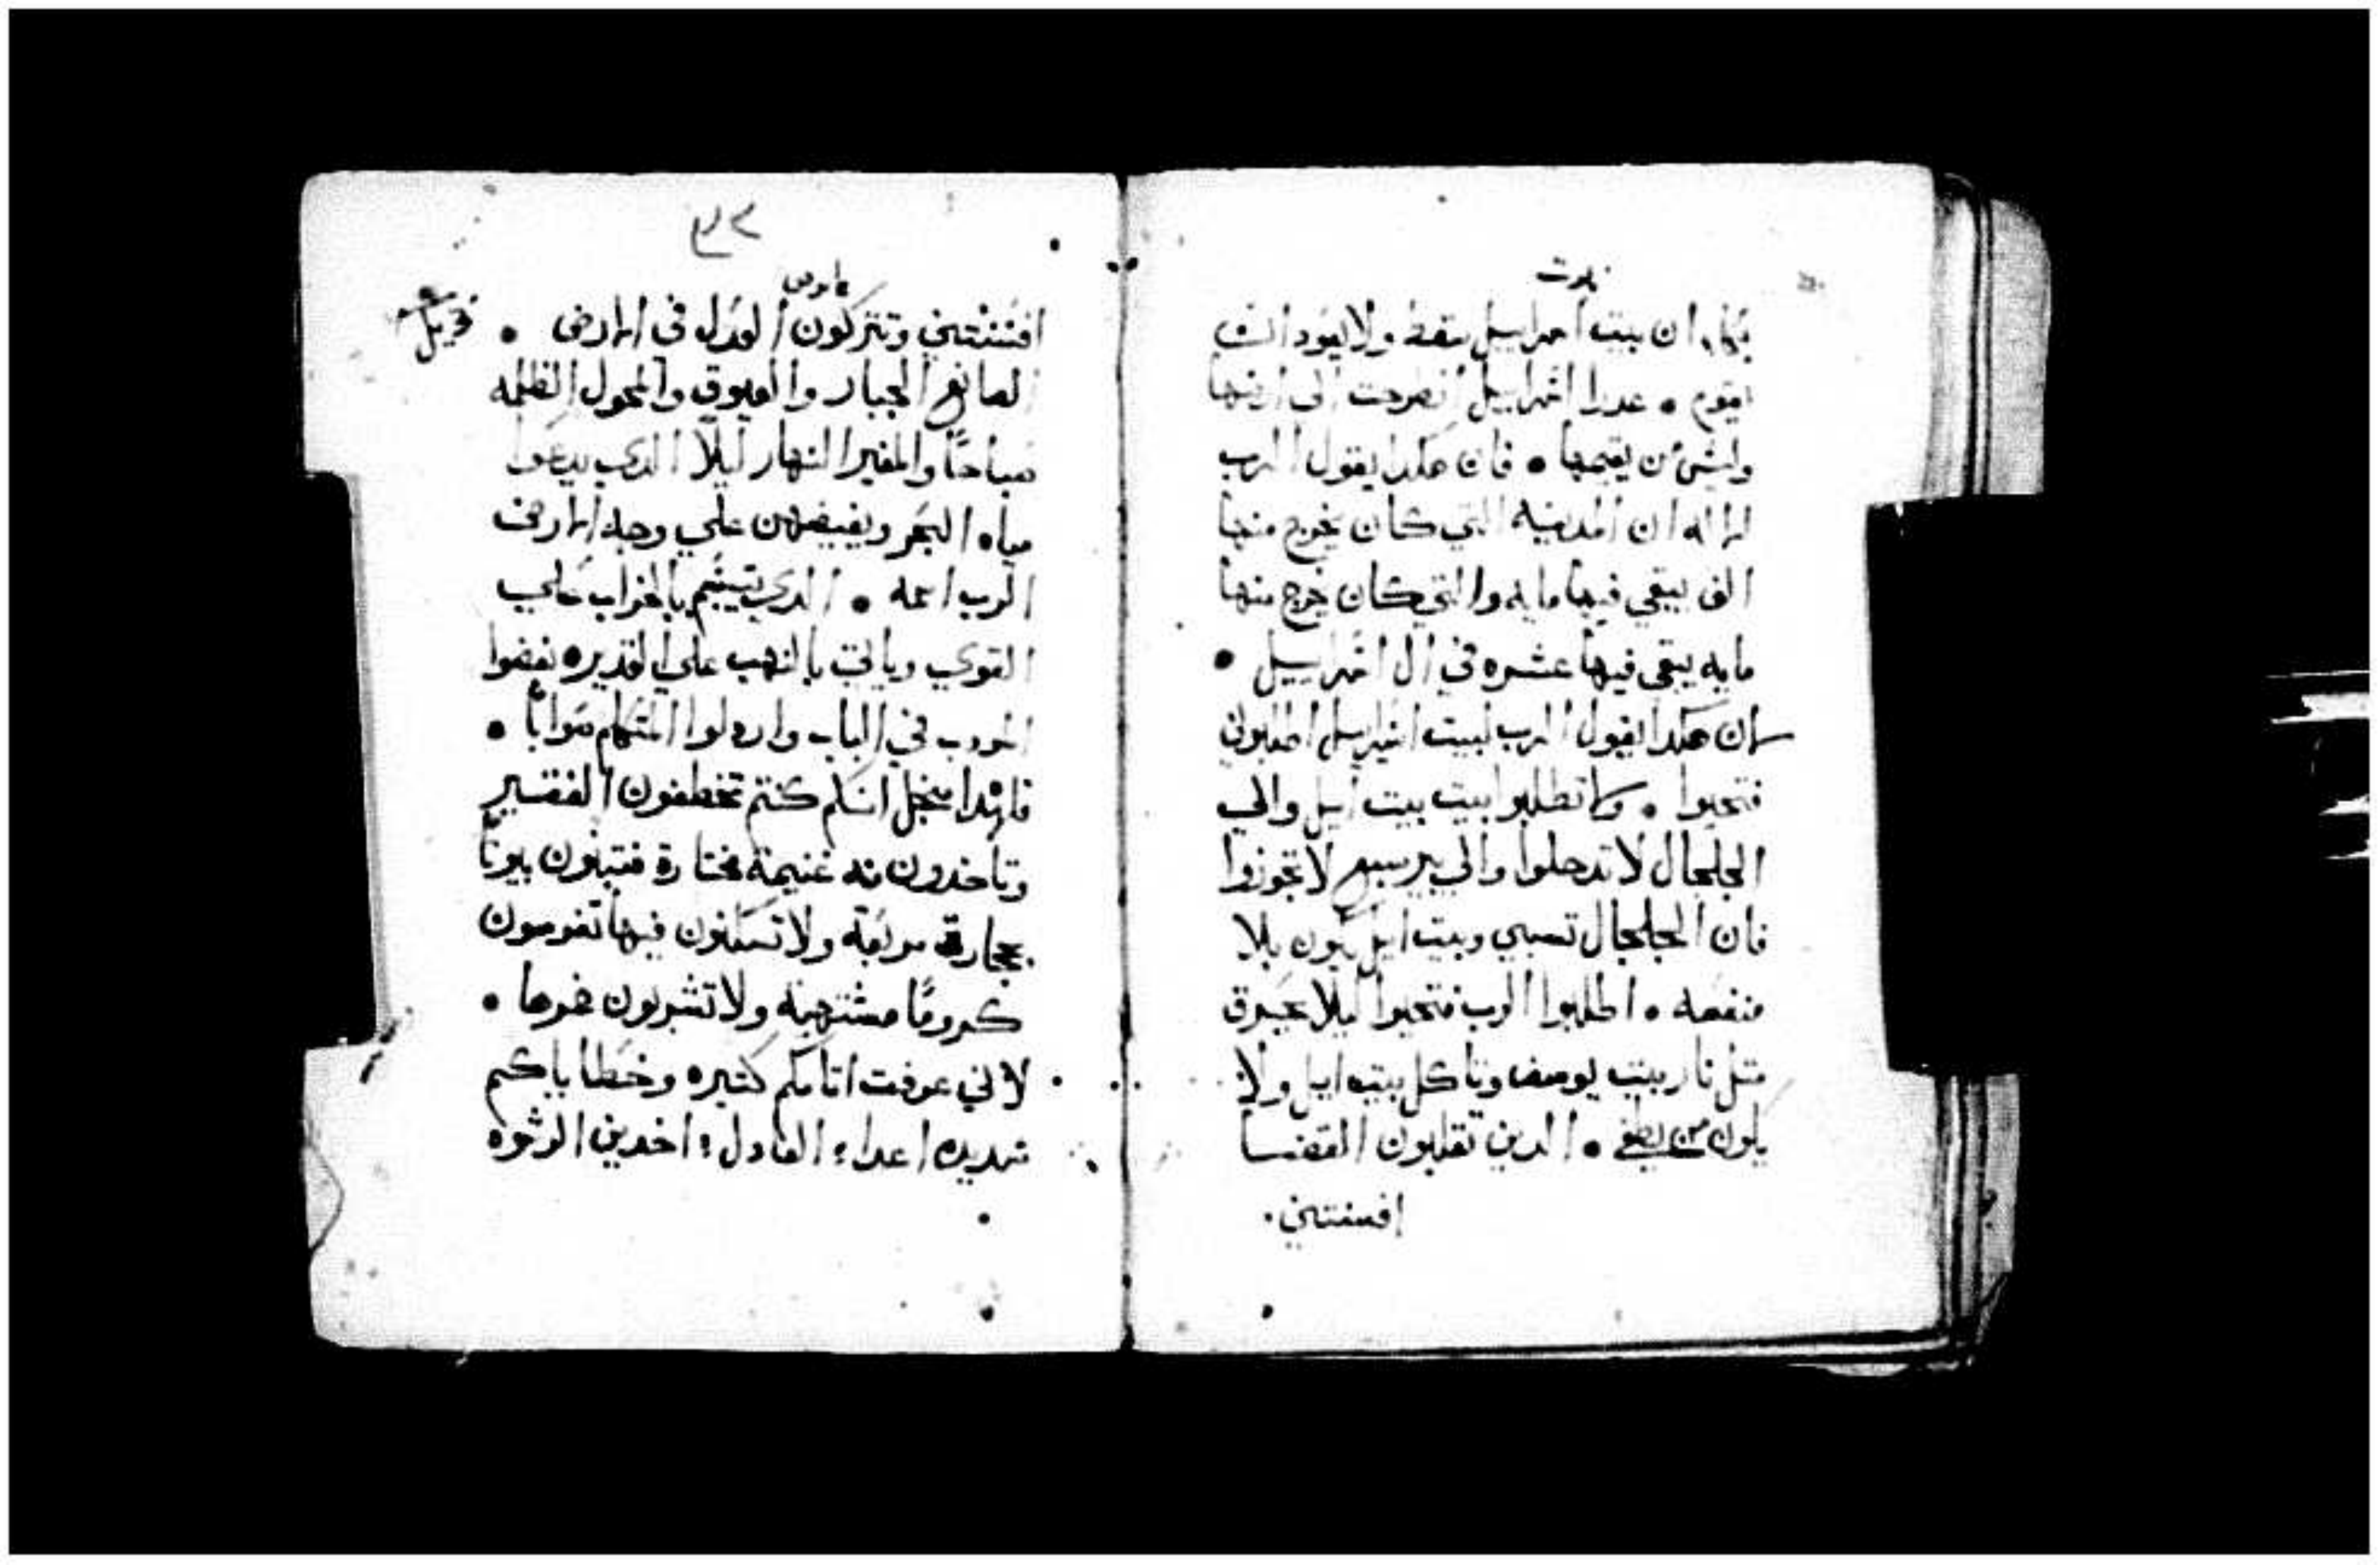 نبوت
بكاء ان بيت اسراييل سقط ولا يعود ان
يقوم • عدرا اسراييل انطرحت الى ارضها
وليس من يقيمها • فان هكدا يقول الرب
الاله ان المدينه التي كان يخرج منها
الف يبقي فيها مايه والتي كان يخرج منها
مايه يبقي فيها عشره في ال اسراييل •
لان هكدا يقول الرب لبيت اسراييل اطلبوني
فتحيوا • ولا تطلبوا بيت بيت ايل والي
الجلجال لا تدخلوا والي بير سبع لا تجوزوا
فان الجلجال تسبي وبيت ايل يكون بلا
منفعه • اطلبوا الرب فتحيوا ليلا يحرق
متل نار بيت يوسف وتاكل بيت ايل ولا
يكون من يطفي • الدين تقلبون القضا
افسنتين •
عاموص
افسنتين وتتركون العدل في الارض •
الصانع الجبار والعيوق والمحول الظلمه
صباحًا والمغير النهار ليلًا الدي يدعوا
مياه البحر ويفيضهن علي وجه الارض
الرب اسمه • الدي يتبسّم بالخراب علي
القوي وياتي بالنهب علي القدير • بغضوا
المودب في الباب واردلوا المتكلم صوابًا •
فلهدا منجل انكم كنتم تخطفون الفقير
وتاخدون منه غنيمة مختارة فتبنون بيوتًا
بحجارة مربعة ولا تسكنون فيها تغرسون
كرومًا مشتهية ولا تشربون خمرها •
لاني عرفت اتامكم كتيره وخطاياكم
شديده اعداء العادل اخدين الرشوه